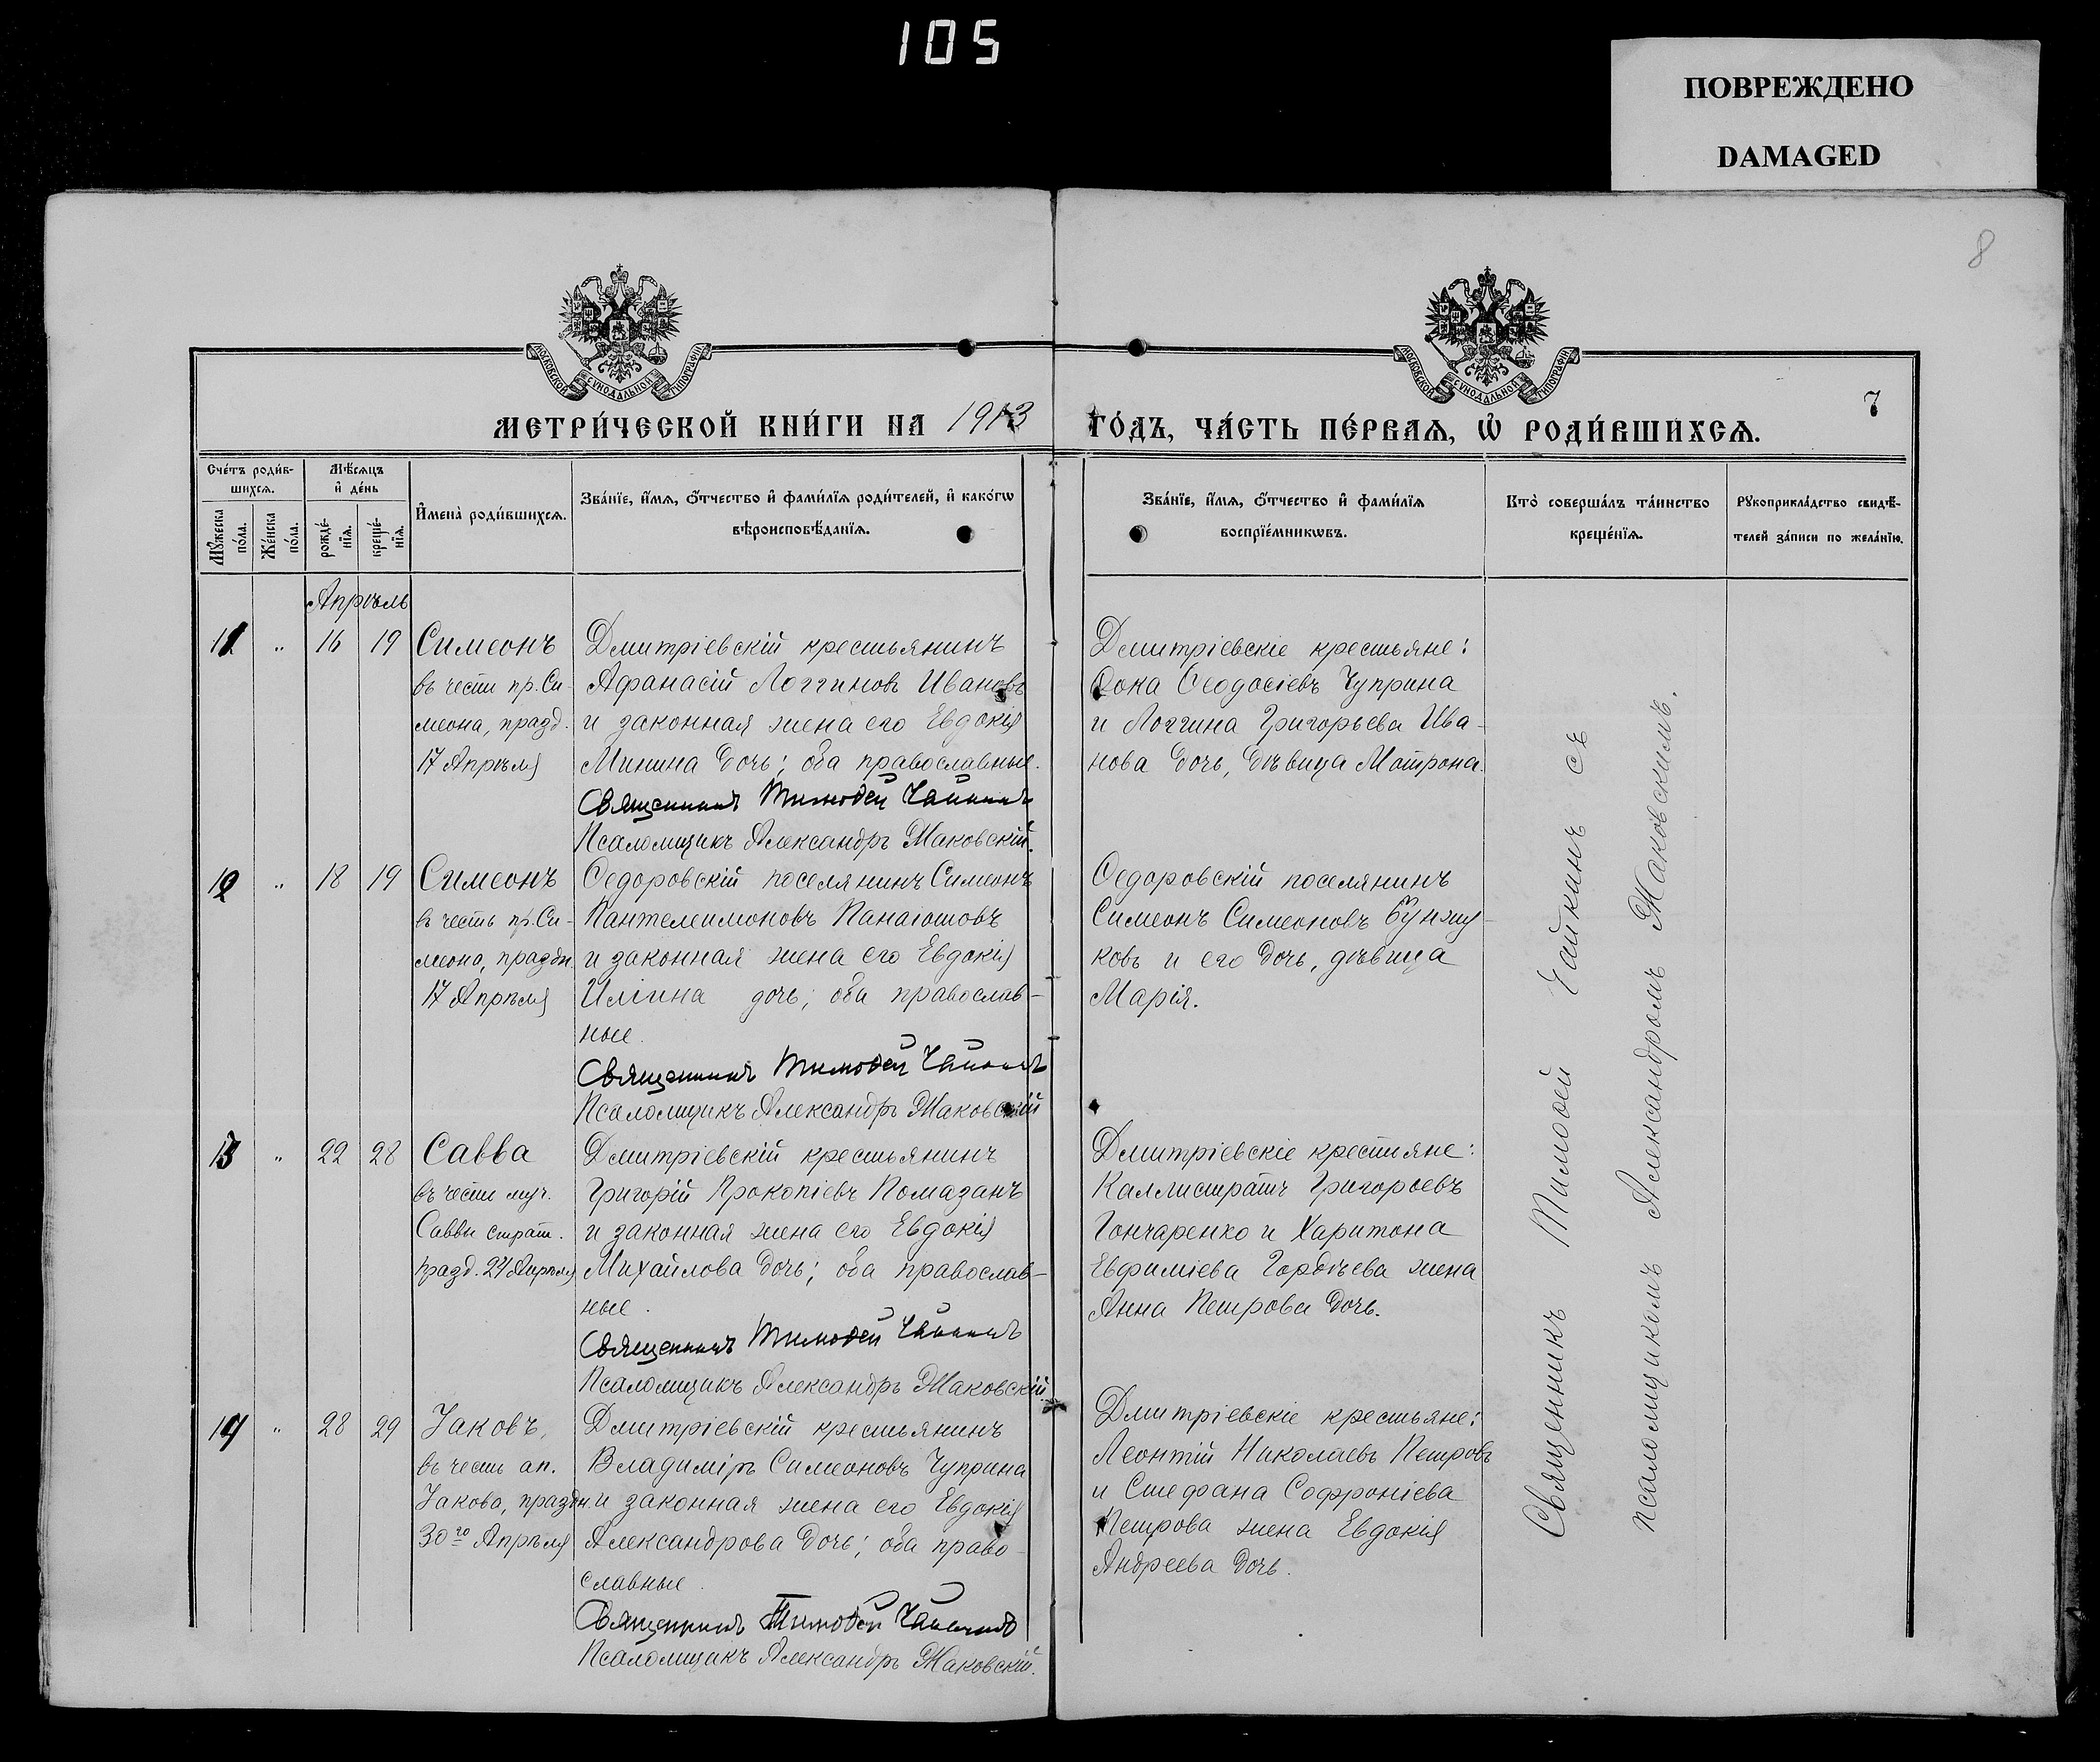 105
ПОВРЕЖДЕНО
DAMAGED
8
МОСКОВСКОЙ СѴНОДАЛЬНОЙ ТИПОГРАФІИ
МОСКОВСКОЙ СѴНОДАЛЬНОЙ ТИПОГРАФІИ
7
МЕТРИ́ЧЕСКОЙ КНИ́ГИ НА 1913
ГО́ДЪ, ЧА́СТЬ ПЕ́РВАѦ, Ѽ РОДИ́ВШИХСѦ.
Сче́тъ роди́в-
шихсѧ.
Мꙋ́жеска
по́ла.
Же́нска
по́ла.
Мѣ́сѧцъ
и҆ де́нь
рожде́-
нїѧ.
креще́-
нїѧ.
И҆мена̀ роди́вшихсѧ.
Зва́нїе, и҆́мѧ, ѻ҆́тчество и҆ фами́лїѧ роди́телей, и҆ како́гѡ
вѣроисповѣ́данїѧ.
Зва́нїе, и҆́мѧ, ѻ҆́тчество и҆ фами́лїѧ
воспрїе́мникѡвъ.
Кто̀ соверша́лъ та́инство
креще́нїѧ.
Рꙋкоприкла́дство свидѣ́-
телей за́писи по жела́нїю.
Апрѣль
11 " 16 19 Симеонъ
въ честь пр. Си-
меона, празд.
17 Апрѣля
Дмитріевскій крестьянинъ
Афанасій Логгиновъ Ивановъ
и законная жена его Евдокія
Минина дочь; оба православные.
Священникъ Тимоѳей Чайкинъ
Псаломщикъ Александръ Маковскій.
Дмитріевскіе крестьяне:
Ѳока Ѳеодосіевъ Чуприна
и Логгина Григорьева Ива-
нова дочь, дѣвица Матрона.
12 " 18 19 Симеонъ
въ честь пр. Си-
меона, праздн.
17 Апрѣля
Ѳедоровскій поселянинъ Симеонъ
Пантелеимоновъ Панаіотовъ
и законная жена его Евдокія
Иліина дочь; оба православ-
ные.
Священникъ Тимоѳей Чайкинъ
Псаломщикъ Александръ Маковскій
Ѳедоровскій поселянинъ
Симеонъ Симеоновъ Бунжу-
ковъ и его дочь, дѣвица
Марія.
13 " 22 28 Савва
въ честь муч.
Саввы страт.
празд. 24 Апрѣля
Дмитріевскій крестьянинъ
Григорій Прокопіевъ Помазанъ
и законная жена его Евдокія
Михайлова дочь; оба православ-
ные.
Священникъ Тимоѳей Чайкинъ
Псаломщикъ Александръ Маковскій
Дмитріевскіе крестьяне:
Каллистратъ Григорьевъ
Гончаренко и Харитона
Евфиміева Гордѣева жена
Анна Петрова дочь.
14 " 28 29 Іаковъ,
въ честь ап.
Іакова, праздн.
30го Апрѣля
Дмитріевскій крестьянинъ
Владиміръ Симеоновъ Чуприна
и законная жена его Евдокія
Александрова дочь; оба право-
славные.
Священникъ Тимоѳей Чайкинъ
Псаломщикъ Александръ Маковскій.
Дмитріевскіе крестьяне:
Леонтій Николаевъ Петровъ
и Стефана Софроніева
Петрова жена Евдокія
Андреева дочь.
Священникъ Тимоѳей Чайкинъ съ
псаломщикомъ Александромъ Маковскимъ.